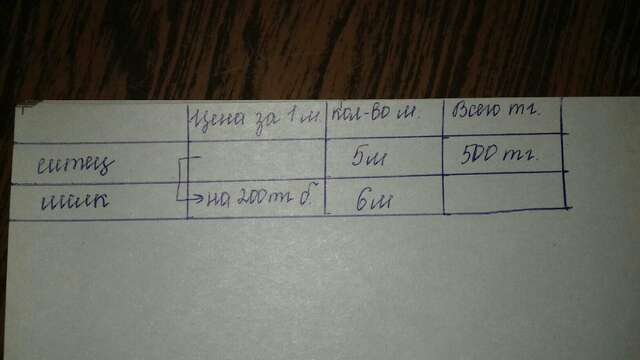 Цена за 1 м. кол-во м. Всего тг.
ситец 5м 500 тг.
шёлк на 200 тг б. 6м